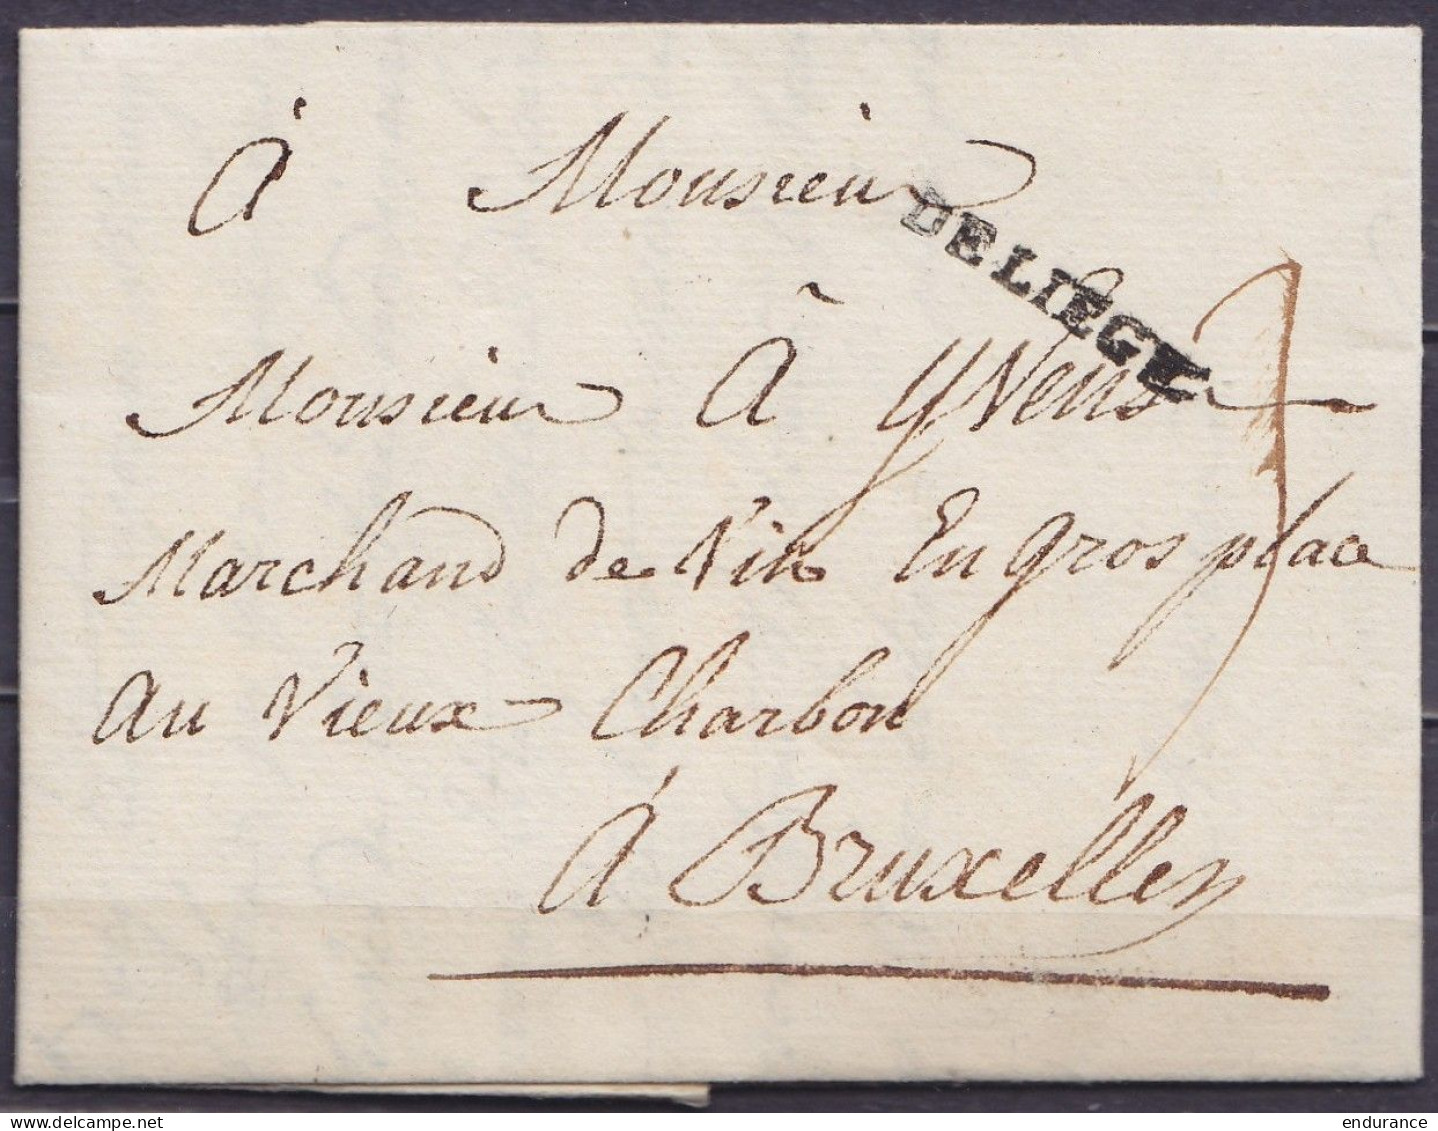 À Monsieur
DE LIEGE
Monsieur A yvens
Marchand de Vin En gros place
au Vieux Charbon
À Bruxelles
7
delcampe.net
endurance